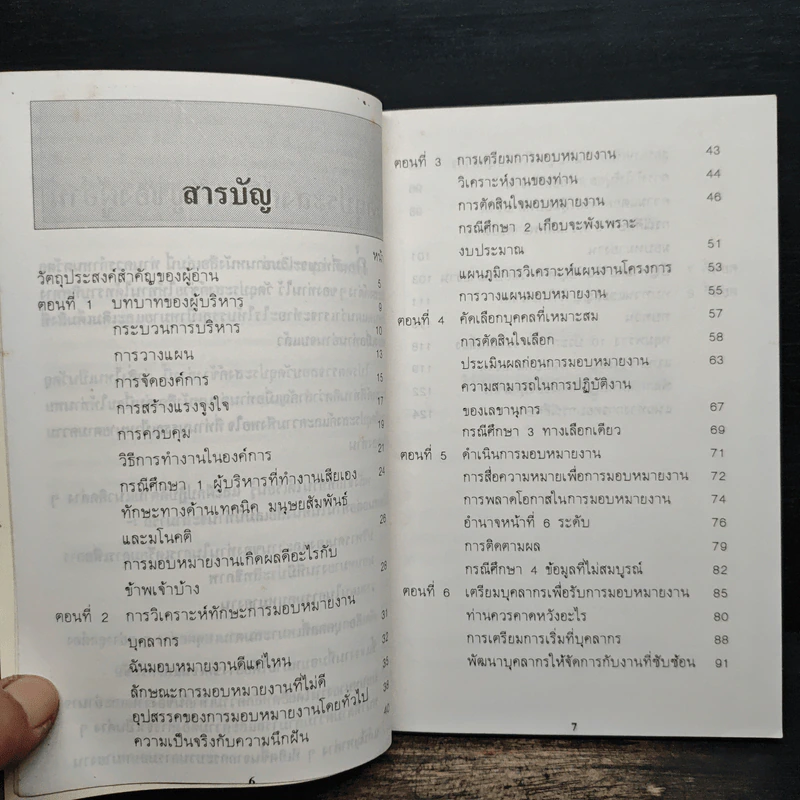 สารบัญ
หน้า
วัตถุประสงค์สำคัญของผู้อ่าน 5
ตอนที่ 1 บทบาทของผู้บริหาร 9
กระบวนการบริหาร 10
การวางแผน 13
การจัดองค์การ 15
การสร้างแรงจูงใจ 17
การควบคุม 19
วิธีการทำงานในองค์การ 21
กรณีศึกษา 1 ผู้บริหารที่ทำงานเสียเอง 24
ทักษะทางด้านเทคนิค มนุษยสัมพันธ์
และมโนคติ 26
การมอบหมายงานเกิดผลดีอะไรกับ
ข้าพเจ้าบ้าง 28
ตอนที่ 2 การวิเคราะห์ทักษะการมอบหมายงาน
บุคลากร 31
ฉันมอบหมายงานดีแค่ไหน 32
ลักษณะการมอบหมายงานที่ไม่ดี 35
อุปสรรคของการมอบหมายงานโดยทั่วไป 36
ความเป็นจริงกับความนึกฝัน 40
6
ตอนที่ 3 การเตรียมการมอบหมายงาน 43
วิเคราะห์งานของท่าน 44
การตัดสินใจมอบหมายงาน 46
กรณีศึกษา 2 เกือบจะพังเพราะ
งบประมาณ 51
แผนภูมิการวิเคราะห์แผนงานโครงการ 53
การวางแผนมอบหมายงาน 55
ตอนที่ 4 คัดเลือกบุคคลที่เหมาะสม 57
การตัดสินใจเลือก 58
ประเมินผลก่อนการมอบหมายงาน 63
ความสามารถในการปฏิบัติงาน
ของเลขานุการ 67
กรณีศึกษา 3 ทางเลือกเดียว 69
ตอนที่ 5 ดำเนินการมอบหมายงาน 71
การสื่อความหมายเพื่อการมอบหมายงาน 72
การพลาดโอกาสในการมอบหมายงาน 74
อำนาจหน้าที่ 6 ระดับ 76
การติดตามผล 79
กรณีศึกษา 4 ข้อมูลที่ไม่สมบูรณ์ 82
ตอนที่ 6 เตรียมบุคลากรเพื่อรับการมอบหมายงาน 85
ท่านควรคาดหวังอะไร 80
การเตรียมการเริ่มที่บุคลากร 88
พัฒนาบุคลากรให้จัดการกับงานที่ซับซ้อน 91
7